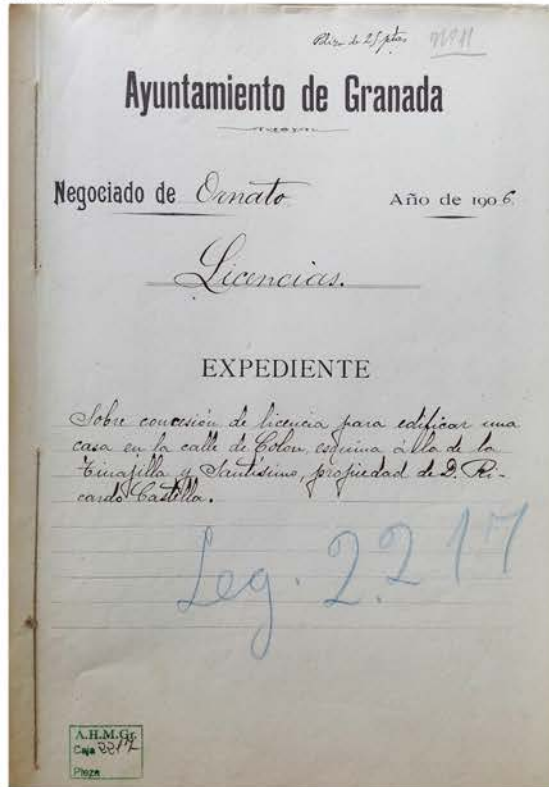 Póliza de 25 ptas
Ayuntamiento de Granada
Negociado de Ornato Año de 1906.
Licencias.
EXPEDIENTE
Sobre concesión de licencia para edificar una
casa en la calle de Colon, esquina á la de la
Tinajilla y Santísimo, propiedad de D. Ri-
cardo Castilla.
Leg. 2.217
A.H.M.Gr.
Caja 2217
Pieza